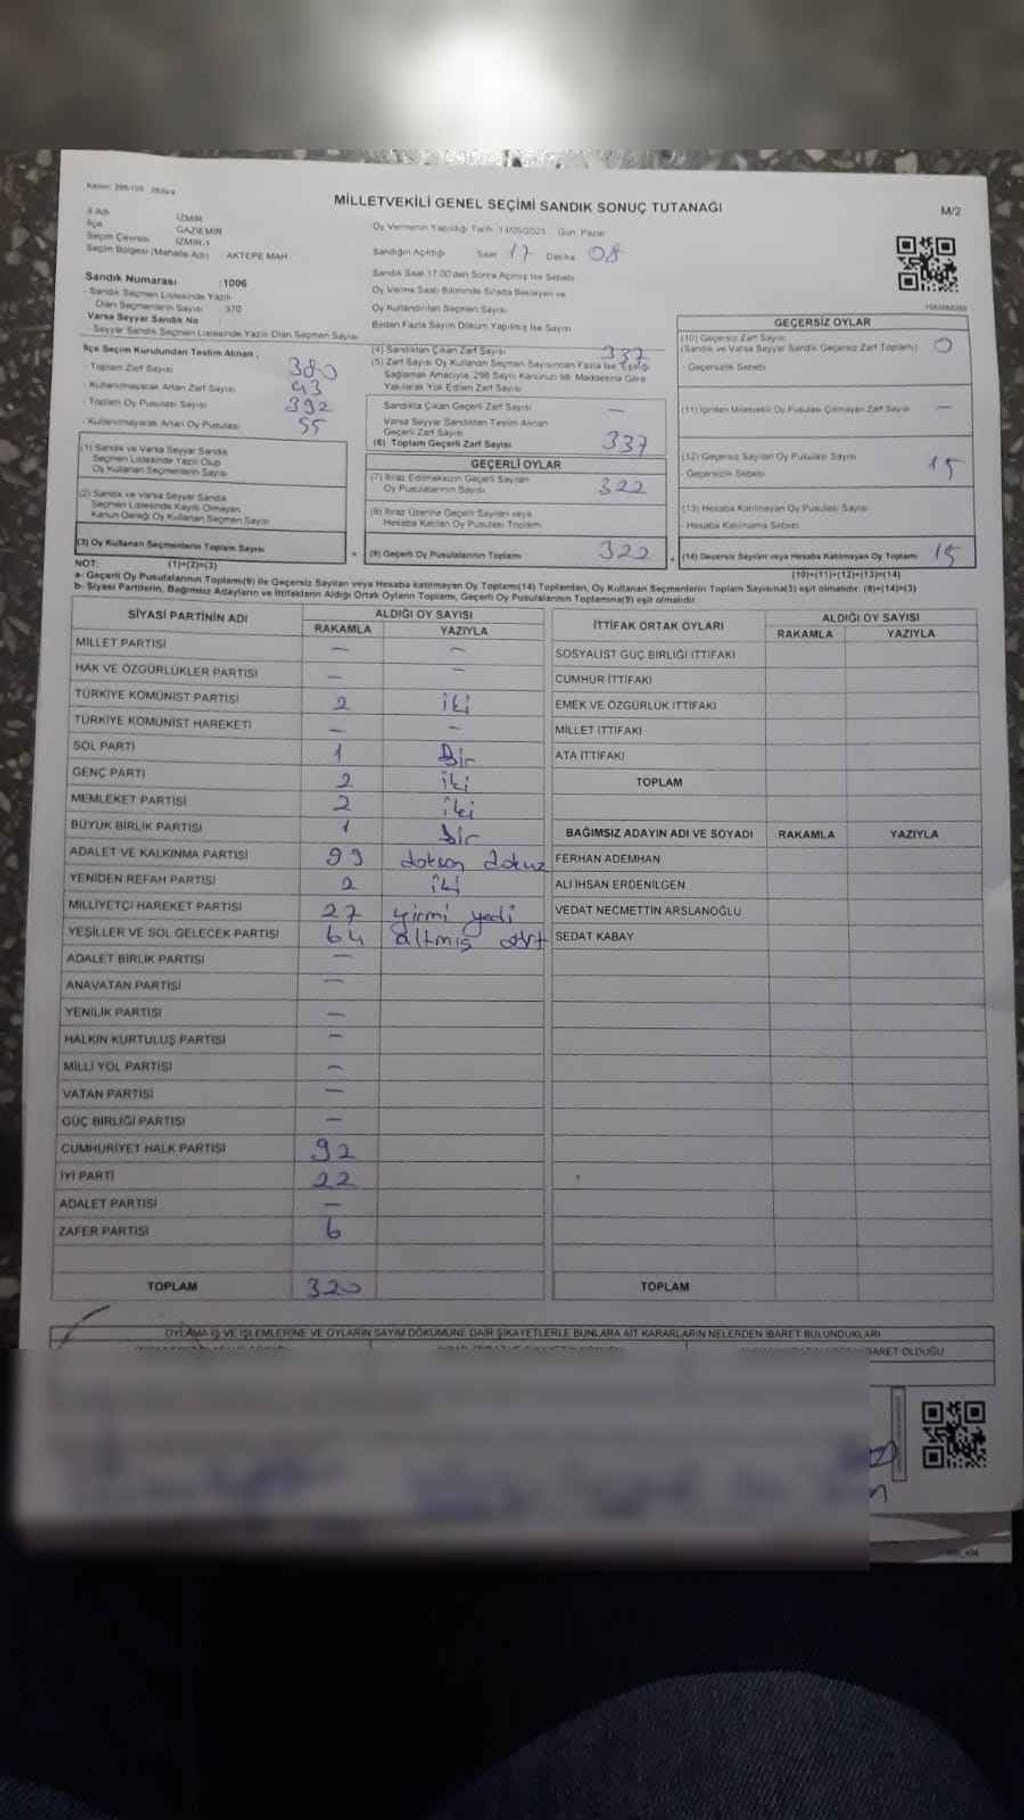 MİLLETVEKİLİ GENEL SEÇİMİ SANDIK SONUÇ TUTANAĞI
M/2
İl Adı İZMİR
İlçe GAZİEMİR
Seçim Çevresi İZMİR-1
Seçim Bölgesi (Mahalle Adı) AKTEPE MAH.
Oy Vermenin Yapıldığı Tarih 14/05/2023 Gün Pazar
Sandığın Açıldığı Saat 17 Dakika 08
Sandık Saat 17.00'den Sonra Açılmış İse Sebebi
Oy Verme Saati Bitiminde Sırada Bekleyen ve
Oy Kullandırılan Seçmen Sayısı
Birden Fazla Sayım Döküm Yapılmış İse Sayısı
Sandık Numarası :1006
- Sandık Seçmen Listesinde Yazılı
Olan Seçmenlerin Sayısı 370
Varsa Seyyar Sandık No
- Seyyar Sandık Seçmen Listesinde Yazılı Olan Seçmen Sayısı
İlçe Seçim Kurulundan Teslim Alınan;
- Toplam Zarf Sayısı 380
- Kullanılmayarak Artan Zarf Sayısı 43
- Toplam Oy Pusulası Sayısı 392
- Kullanılmayarak Artan Oy Pusulası 55
(1) Sandık ve Varsa Seyyar Sandık
Seçmen Listesinde Yazılı Olup
Oy Kullanan Seçmenlerin Sayısı
(2) Sandık ve Varsa Seyyar Sandık
Seçmen Listesinde Kayıtlı Olmayan
Kanun Gereği Oy Kullanan Seçmen Sayısı
(3) Oy Kullanan Seçmenlerin Toplam Sayısı
(4) Sandıktan Çıkan Zarf Sayısı 337
(5) Zarf Sayısı Oy Kullanan Seçmen Sayısından Fazla İse Eşitliği
Sağlamak Amacıyla, 298 Sayılı Kanunun 98. Maddesine Göre
Yakılarak Yok Edilen Zarf Sayısı
Sandıkta Çıkan Geçerli Zarf Sayısı —
Varsa Seyyar Sandıktan Teslim Alınan
Geçerli Zarf Sayısı
(6) Toplam Geçerli Zarf Sayısı 337
GEÇERLİ OYLAR
(7) İtiraz Edilmeksizin Geçerli Sayılan
Oy Pusulalarının Sayısı 322
(8) İtiraz Üzerine Geçerli Sayılan veya
Hesaba Katılan Oy Pusulası Toplamı
(9) Geçerli Oy Pusulalarının Toplamı 322
GEÇERSİZ OYLAR
(10) Geçersiz Zarf Sayısı
(Sandık ve Varsa Seyyar Sandık Geçersiz Zarf Toplamı) 0
- Geçersizlik Sebebi
(11) İçinden Milletvekili Oy Pusulası Çıkmayan Zarf Sayısı —
(12) Geçersiz Sayılan Oy Pusulası Sayısı 15
- Geçersizlik Sebebi
(13) Hesaba Katılmayan Oy Pusulası Sayısı
- Hesaba Katılmama Sebebi
(14) Geçersiz Sayılan veya Hesaba Katılmayan Oy Toplamı 15
NOT: (1)+(2)=(3)
(10)+(11)+(12)+(13)=(14)
a- Geçerli Oy Pusulalarının Toplamı(9) ile Geçersiz Sayılan veya Hesaba katılmayan Oy Toplamı(14) Toplamları, Oy Kullanan Seçmenlerin Toplam Sayısına(3) eşit olmalıdır. (9)+(14)=(3)
b- Siyasi Partilerin, Bağımsız Adayların ve İttifakların Aldığı Ortak Oyların Toplamı, Geçerli Oy Pusulalarının Toplamına(9) eşit olmalıdır.
SİYASİ PARTİNİN ADI ALDIĞI OY SAYISI
RAKAMLA YAZIYLA
MİLLET PARTİSİ — —
HAK VE ÖZGÜRLÜKLER PARTİSİ — —
TÜRKİYE KOMÜNİST PARTİSİ 2 iki
TÜRKİYE KOMÜNİST HAREKETİ — —
SOL PARTİ 1 Bir
GENÇ PARTİ 2 iki
MEMLEKET PARTİSİ 2 iki
BÜYÜK BİRLİK PARTİSİ 1 Bir
ADALET VE KALKINMA PARTİSİ 99 doksan dokuz
YENİDEN REFAH PARTİSİ 2 iki
MİLLİYETÇİ HAREKET PARTİSİ 27 yirmi yedi
YEŞİLLER VE SOL GELECEK PARTİSİ 64 altmış dört
ADALET BİRLİK PARTİSİ —
ANAVATAN PARTİSİ —
YENİLİK PARTİSİ —
HALKIN KURTULUŞ PARTİSİ —
MİLLİ YOL PARTİSİ —
VATAN PARTİSİ —
GÜÇ BİRLİĞİ PARTİSİ —
CUMHURİYET HALK PARTİSİ 92
İYİ PARTİ 22
ADALET PARTİSİ —
ZAFER PARTİSİ 6
TOPLAM 320
İTTİFAK ORTAK OYLARI ALDIĞI OY SAYISI
RAKAMLA YAZIYLA
SOSYALİST GÜÇ BİRLİĞİ İTTİFAKI
CUMHUR İTTİFAKI
EMEK VE ÖZGÜRLÜK İTTİFAKI
MİLLET İTTİFAKI
ATA İTTİFAKI
TOPLAM
BAĞIMSIZ ADAYIN ADI VE SOYADI RAKAMLA YAZIYLA
FERHAN ADEMHAN
ALİ İHSAN ERDENİLGEN
VEDAT NECMETTİN ARSLANOĞLU
SEDAT KABAY
TOPLAM
OYLAMA İŞ VE İŞLEMLERİNE VE OYLARIN SAYIM DÖKÜMÜNE DAİR ŞİKAYETLERLE BUNLARA AİT KARARLARIN NELERDEN İBARET BULUNDUKLARI
OLDUĞU